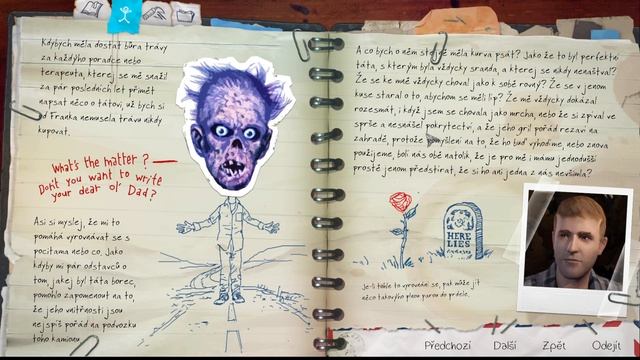 Kdybych měla dostat bůra trávy
za každýho poradce nebo
terapeuta, kterej se mě snažil
za pár posledních let přimět
napsat něco o tátovi, už bych si
od Franka nemusela trávu nikdy
kupovat.
What's the matter?
Don't you want to write
your dear ol' Dad?
Asi si myslej, že mi to
pomáhá vyrovnávat se s
pocitama nebo co. Jako
kdyby mi pár odstavců o
tom, jakej byl táta borec,
pomohlo zapomenout na to,
že jeho vnitřnosti jsou
nejspíš pořád na podvozku
toho kamionu.
A co bych o něm stejně měla kurva psát? Jako že to byl perfektní
táta, s kterým byla vždycky sranda, a kterej se nikdy nenaštval?
Že se ke mně vždycky choval jako k sobě rovný? Že se v jenom
kuse staral o to, abychom se měli líp? Že mě vždycky dokázal
rozesmát, i když jsem se chovala jako mrcha, nebo že si zpíval ve
sprše a nesnášel pokrytectví, a že jeho gril pořád rezaví na
zahradě, protože myšlenka na to, že ho buď vyhodíme, nebo znova
použijeme, bolí nás obě natolik, že je pro mě i mámu jednodušší
prostě jenom předstírat, že si ho ani jedna z nás nevšimla?
HERE
LIES
Je-li tohle to vyrovnání se, pak může jít
něco takovýho plnou parou do prdele.
Předchozí Další Zpět Odejít